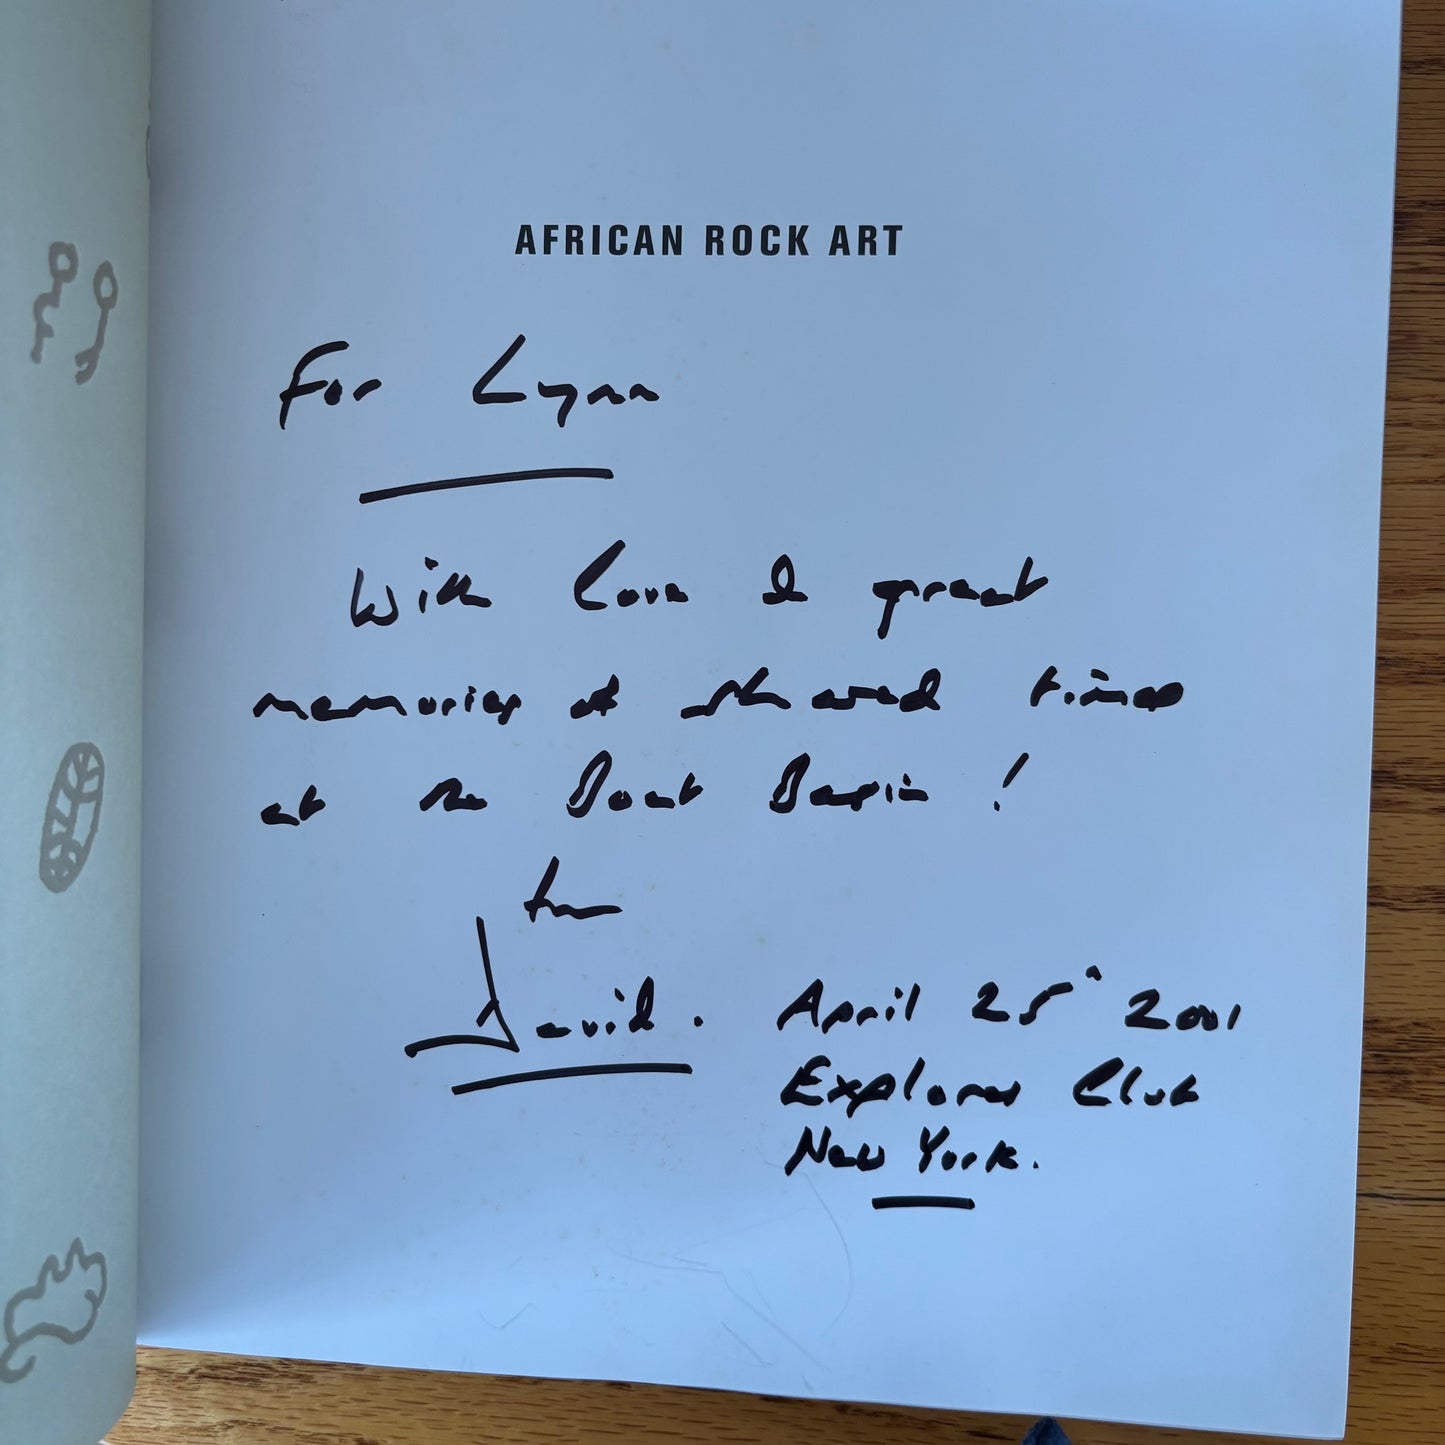 AFRICAN ROCK ART
For Lynn
With love & great
memories of shared times
at the Boat Basin!
from
David.
April 25th 2001
Explorers Club
New York.